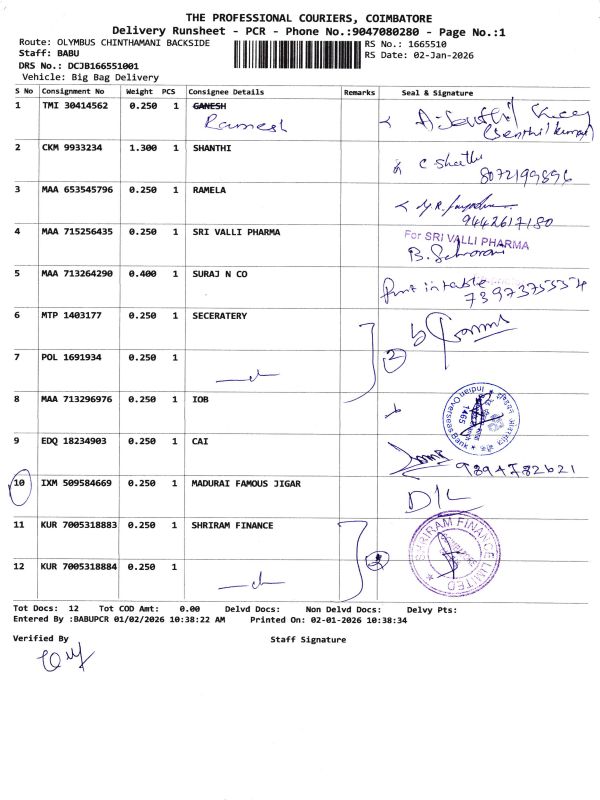 THE PROFESSIONAL COURIERS, COIMBATORE
Delivery Runsheet - PCR - Phone No.:9047080280 - Page No.:1
Route: OLYMBUS CHINTHAMANI BACKSIDE
RS No.: 1665510
Staff: BABU
RS Date: 02-Jan-2026
DRS No.: DCJB166551001
Vehicle: Big Bag Delivery
S No Consignment No Weight PCS Consignee Details Remarks Seal & Signature
1 TMI 30414562 0.250 1 GANESH
Ramesh
(Senthil kumar)
2 CKM 9933234 1.300 1 SHANTHI
8072199896
3 MAA 653545796 0.250 1 RAMELA
9442617180
4 MAA 715256435 0.250 1 SRI VALLI PHARMA
For SRI VALLI PHARMA
5 MAA 713264290 0.400 1 SURAJ N CO
7397375554
6 MTP 1403177 0.250 1 SECERATERY
7 POL 1691934 0.250 1
2
8 MAA 713296976 0.250 1 IOB
Indian Overseas Bank
1465
9 EDQ 18234903 0.250 1 CAI
9894782621
10 IXM 509584669 0.250 1 MADURAI FAMOUS JIGAR
D/L
11 KUR 7005318883 0.250 1 SHRIRAM FINANCE
SHRIRAM FINANCE LIMITED
12 KUR 7005318884 0.250 1
Tot Docs: 12 Tot COD Amt: 0.00 Delvd Docs: Non Delvd Docs: Delvy Pts:
Entered By :BABUPCR 01/02/2026 10:38:22 AM Printed On: 02-01-2026 10:38:34
Verified By Staff Signature